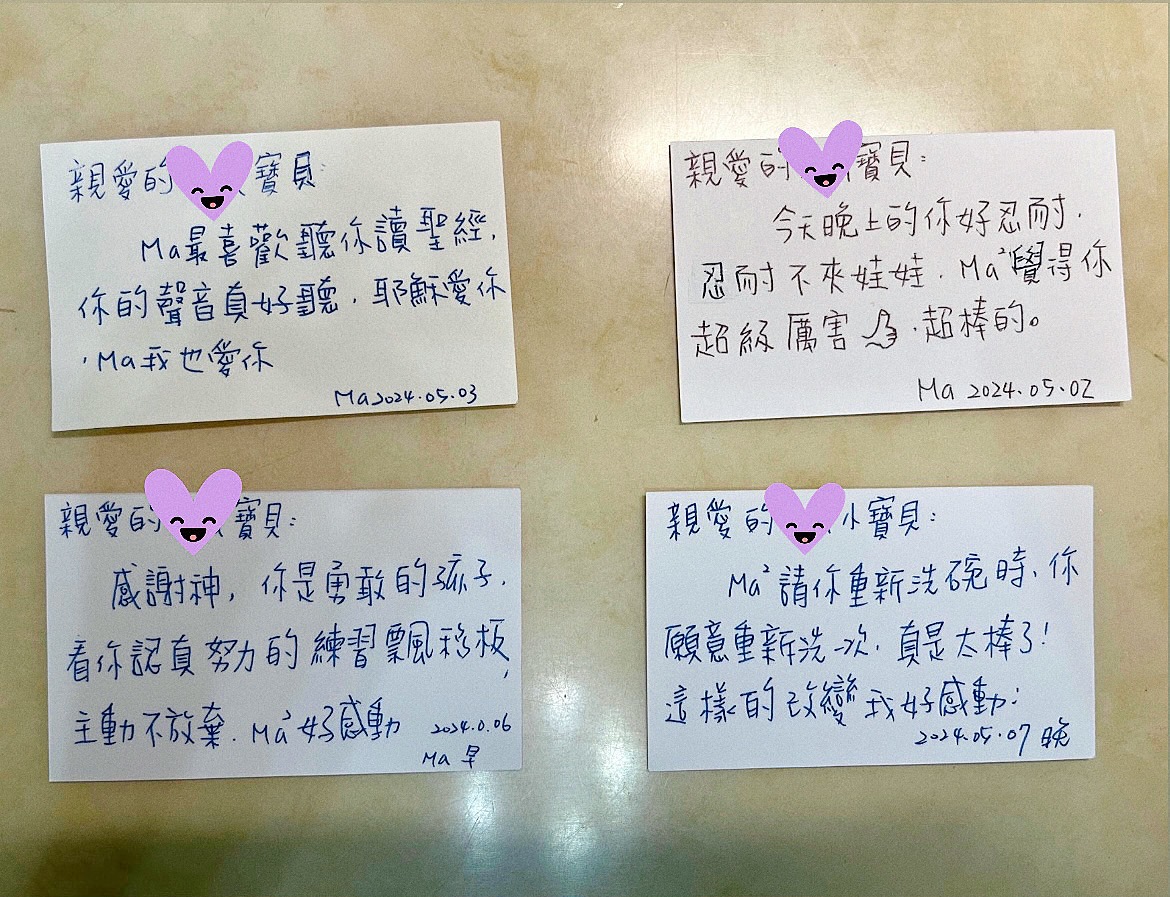 親愛的 寶貝:
Ma最喜歡聽你讀聖經,
你的聲音真好聽.耶穌愛你
,Ma我也愛你
Ma2024.05.03
親愛的 寶貝:
今天晚上的你好忍耐.
忍耐不夾娃娃.Ma²覺得你
超級厲害 .超棒的。
Ma 2024.05.02
親愛的 寶貝:
感謝神,你是勇敢的孩子.
看你認真努力的練習飄移板,
主動不放棄.Ma²好感動 2024.0.06
Ma 早
親愛的 小寶貝:
Ma²請你重新洗碗時、你
願意重新洗一次.真是太棒了!
這樣的改變我好感動:
2024.05.07 晚